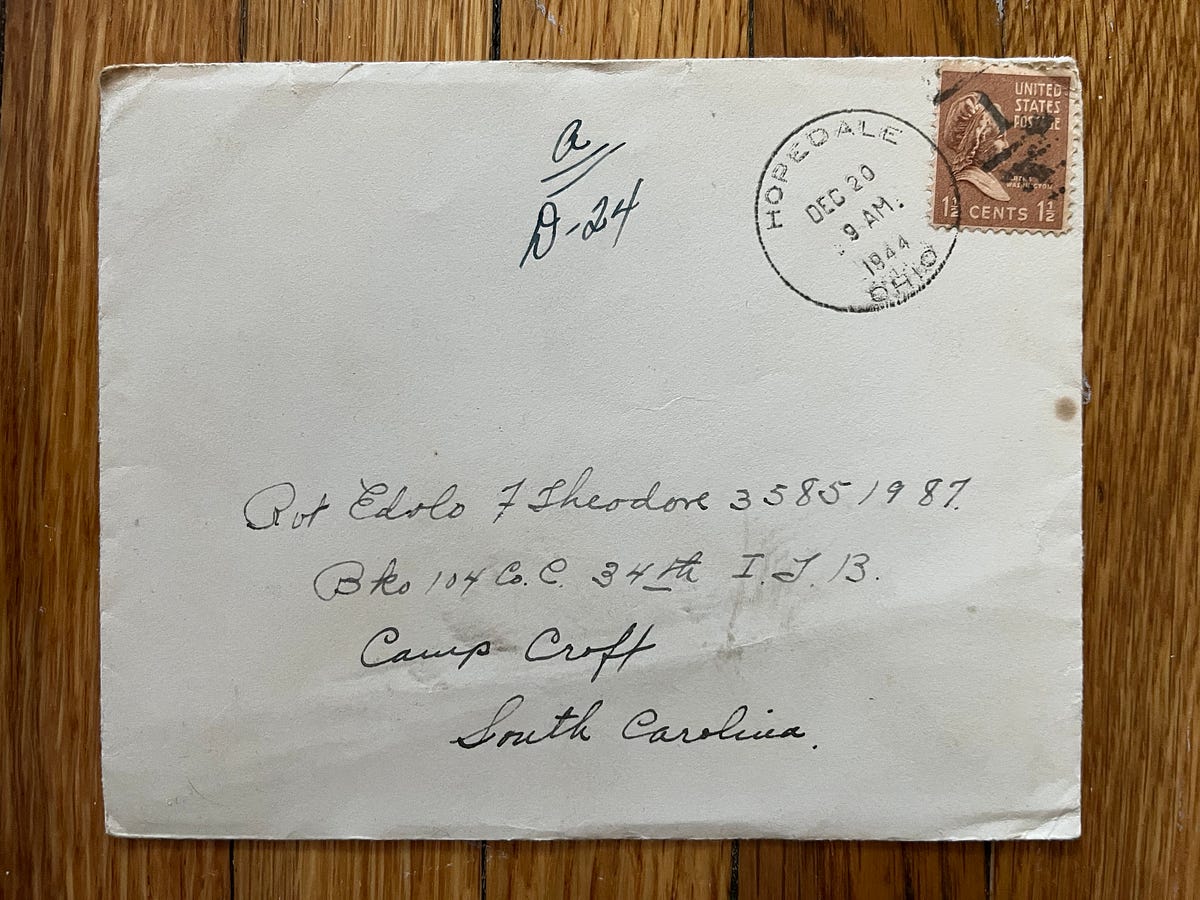 a
D-24
HOPEDALE
DEC 20
9 AM.
1944
OHIO
UNITED
STATES
POSTAGE
WASHINGTON
1½ CENTS 1½
Pvt Edolo F Theodore 35851987.
Bks 104 Co. C. 34th I. T. B.
Camp Croft
South Carolina.